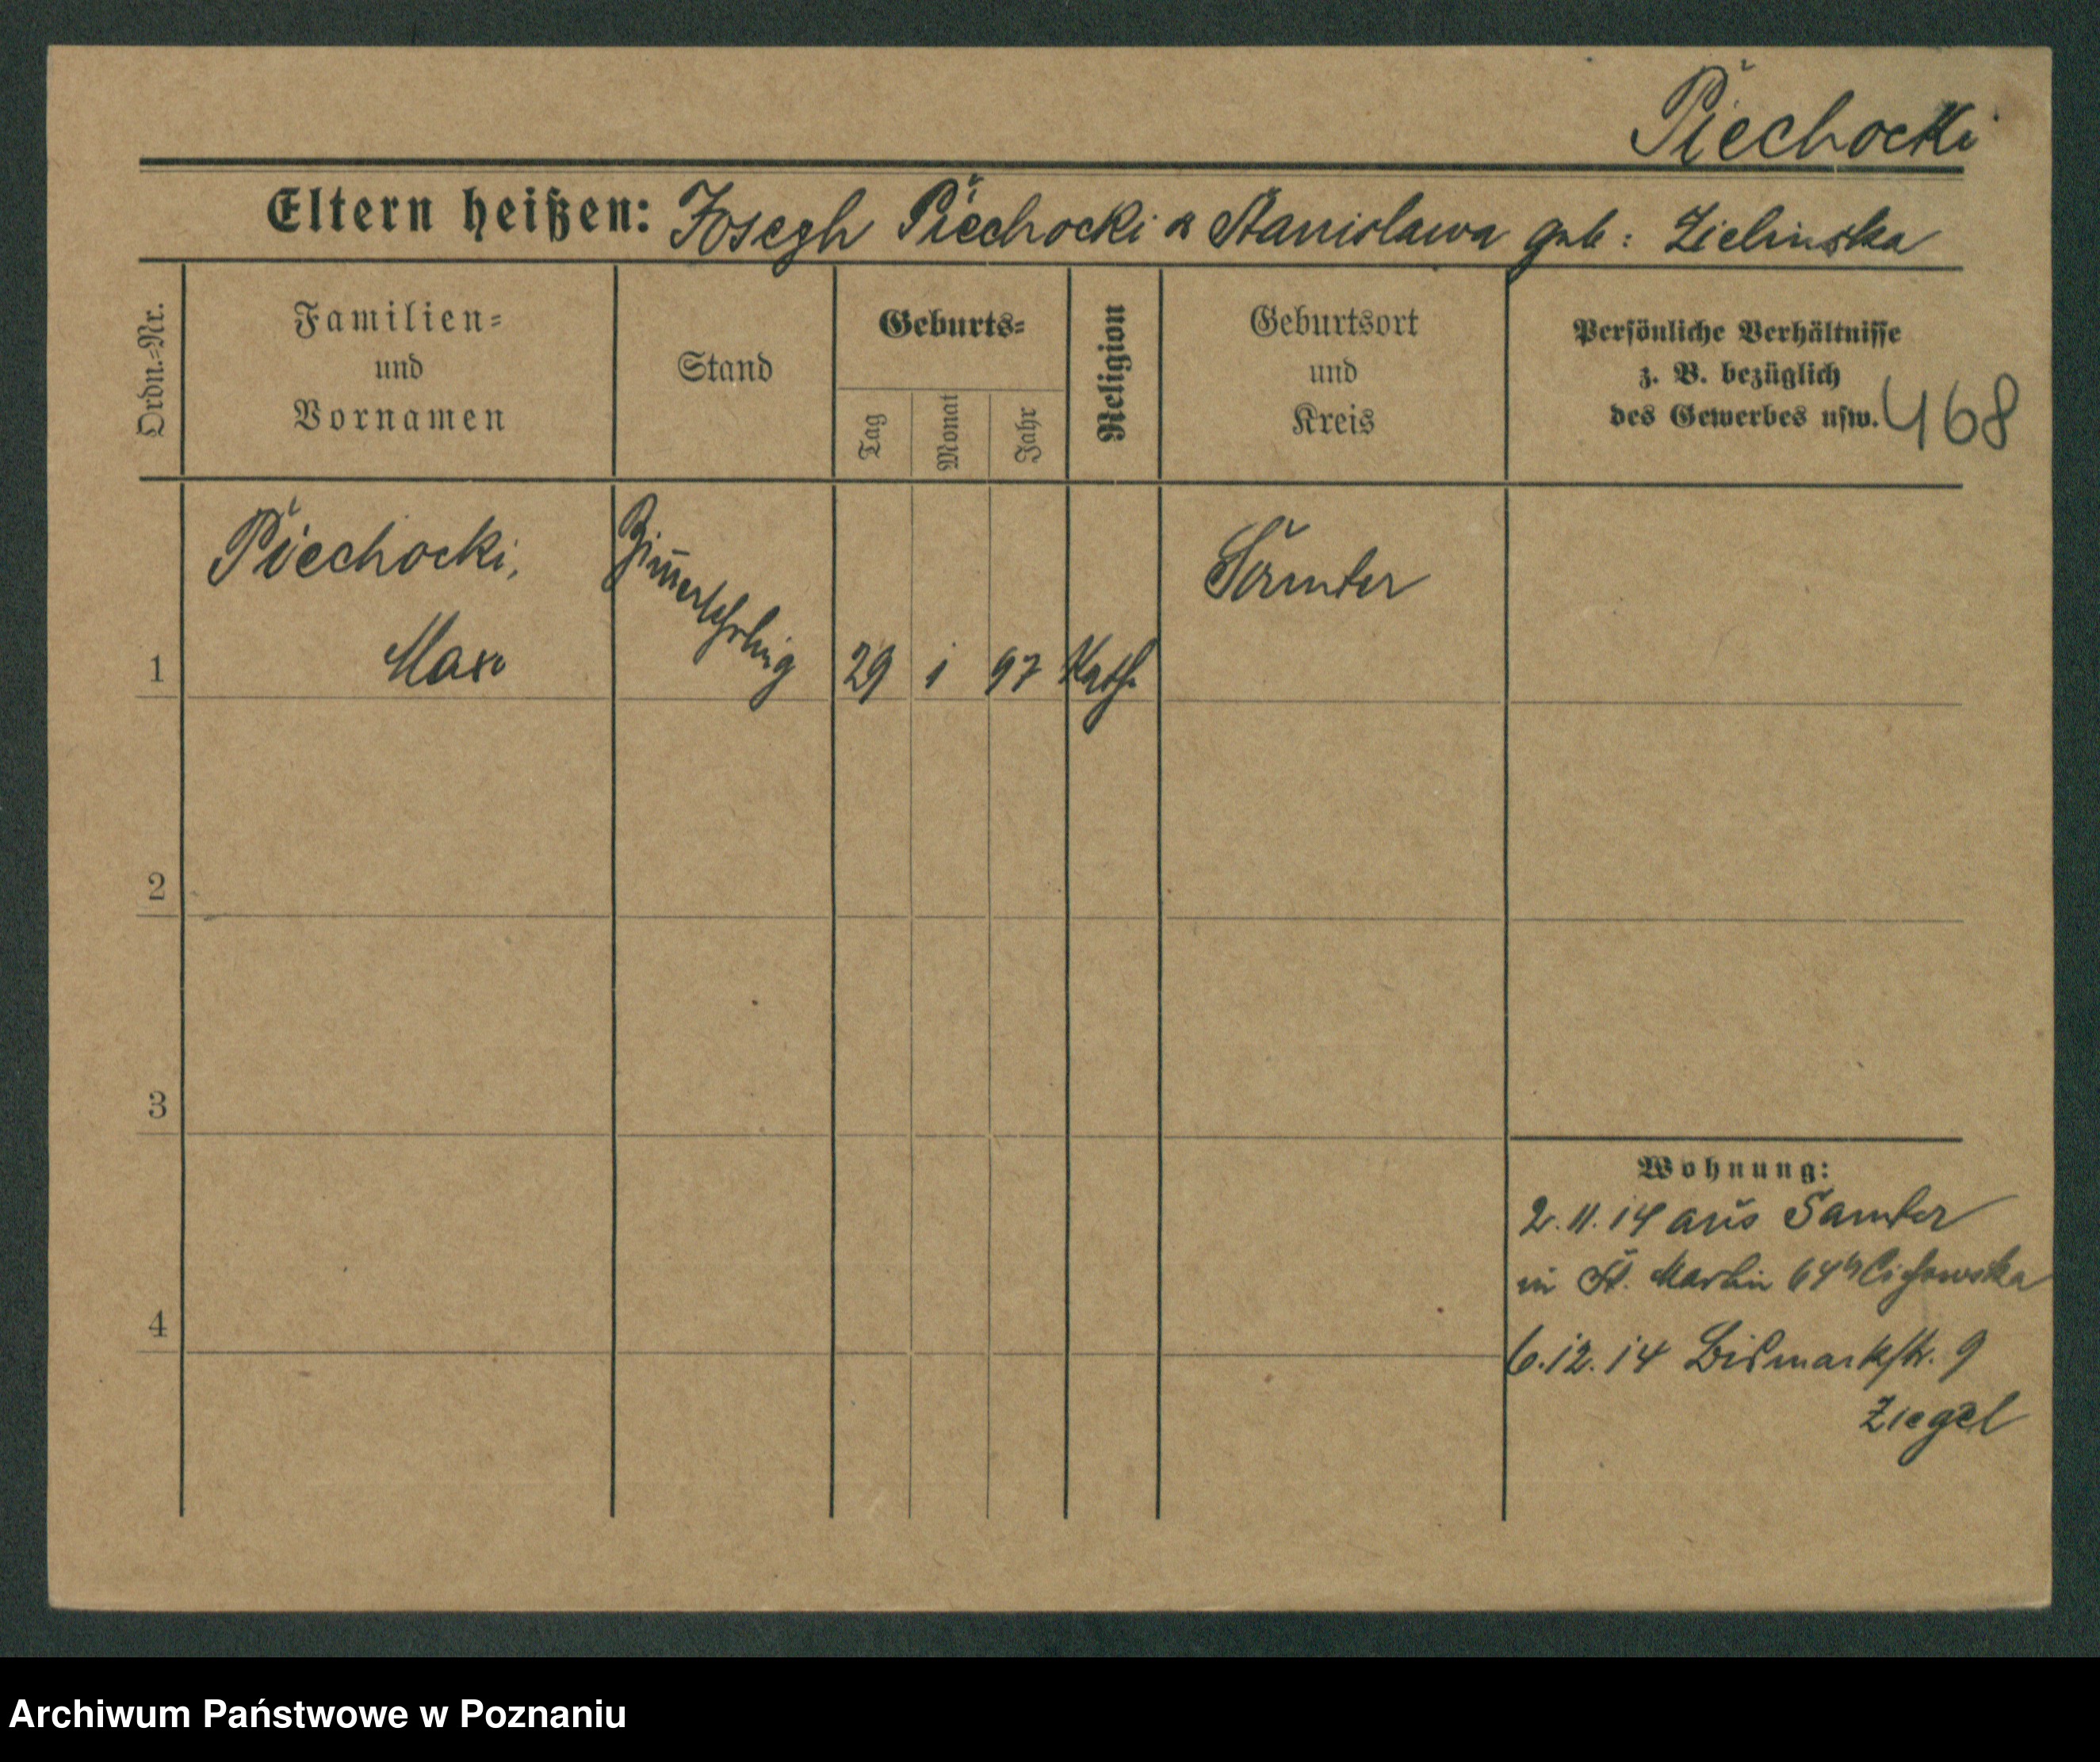 Piechocki
Eltern heißen: Joseph Piechocki & Stanislawa geb: Zielinska
Ordn.=Nr.
Familien=
und
Vornamen
Stand
Geburts=
Tag
Monat
Jahr
Religion
Geburtsort
und
Kreis
Persönliche Verhältnisse
z. B. bezüglich
des Gewerbes usw.
468
Piechocki,
Max
Zim̅erlehrling
1
29
1
97
Kath.
Samter
2
3
4
Wohnung:
2.11.14 aus Samter
in St. Martin 64 Cichowska
6.12.14 Bismarkstr. 9
Ziegel
Archiwum Państwowe w Poznaniu